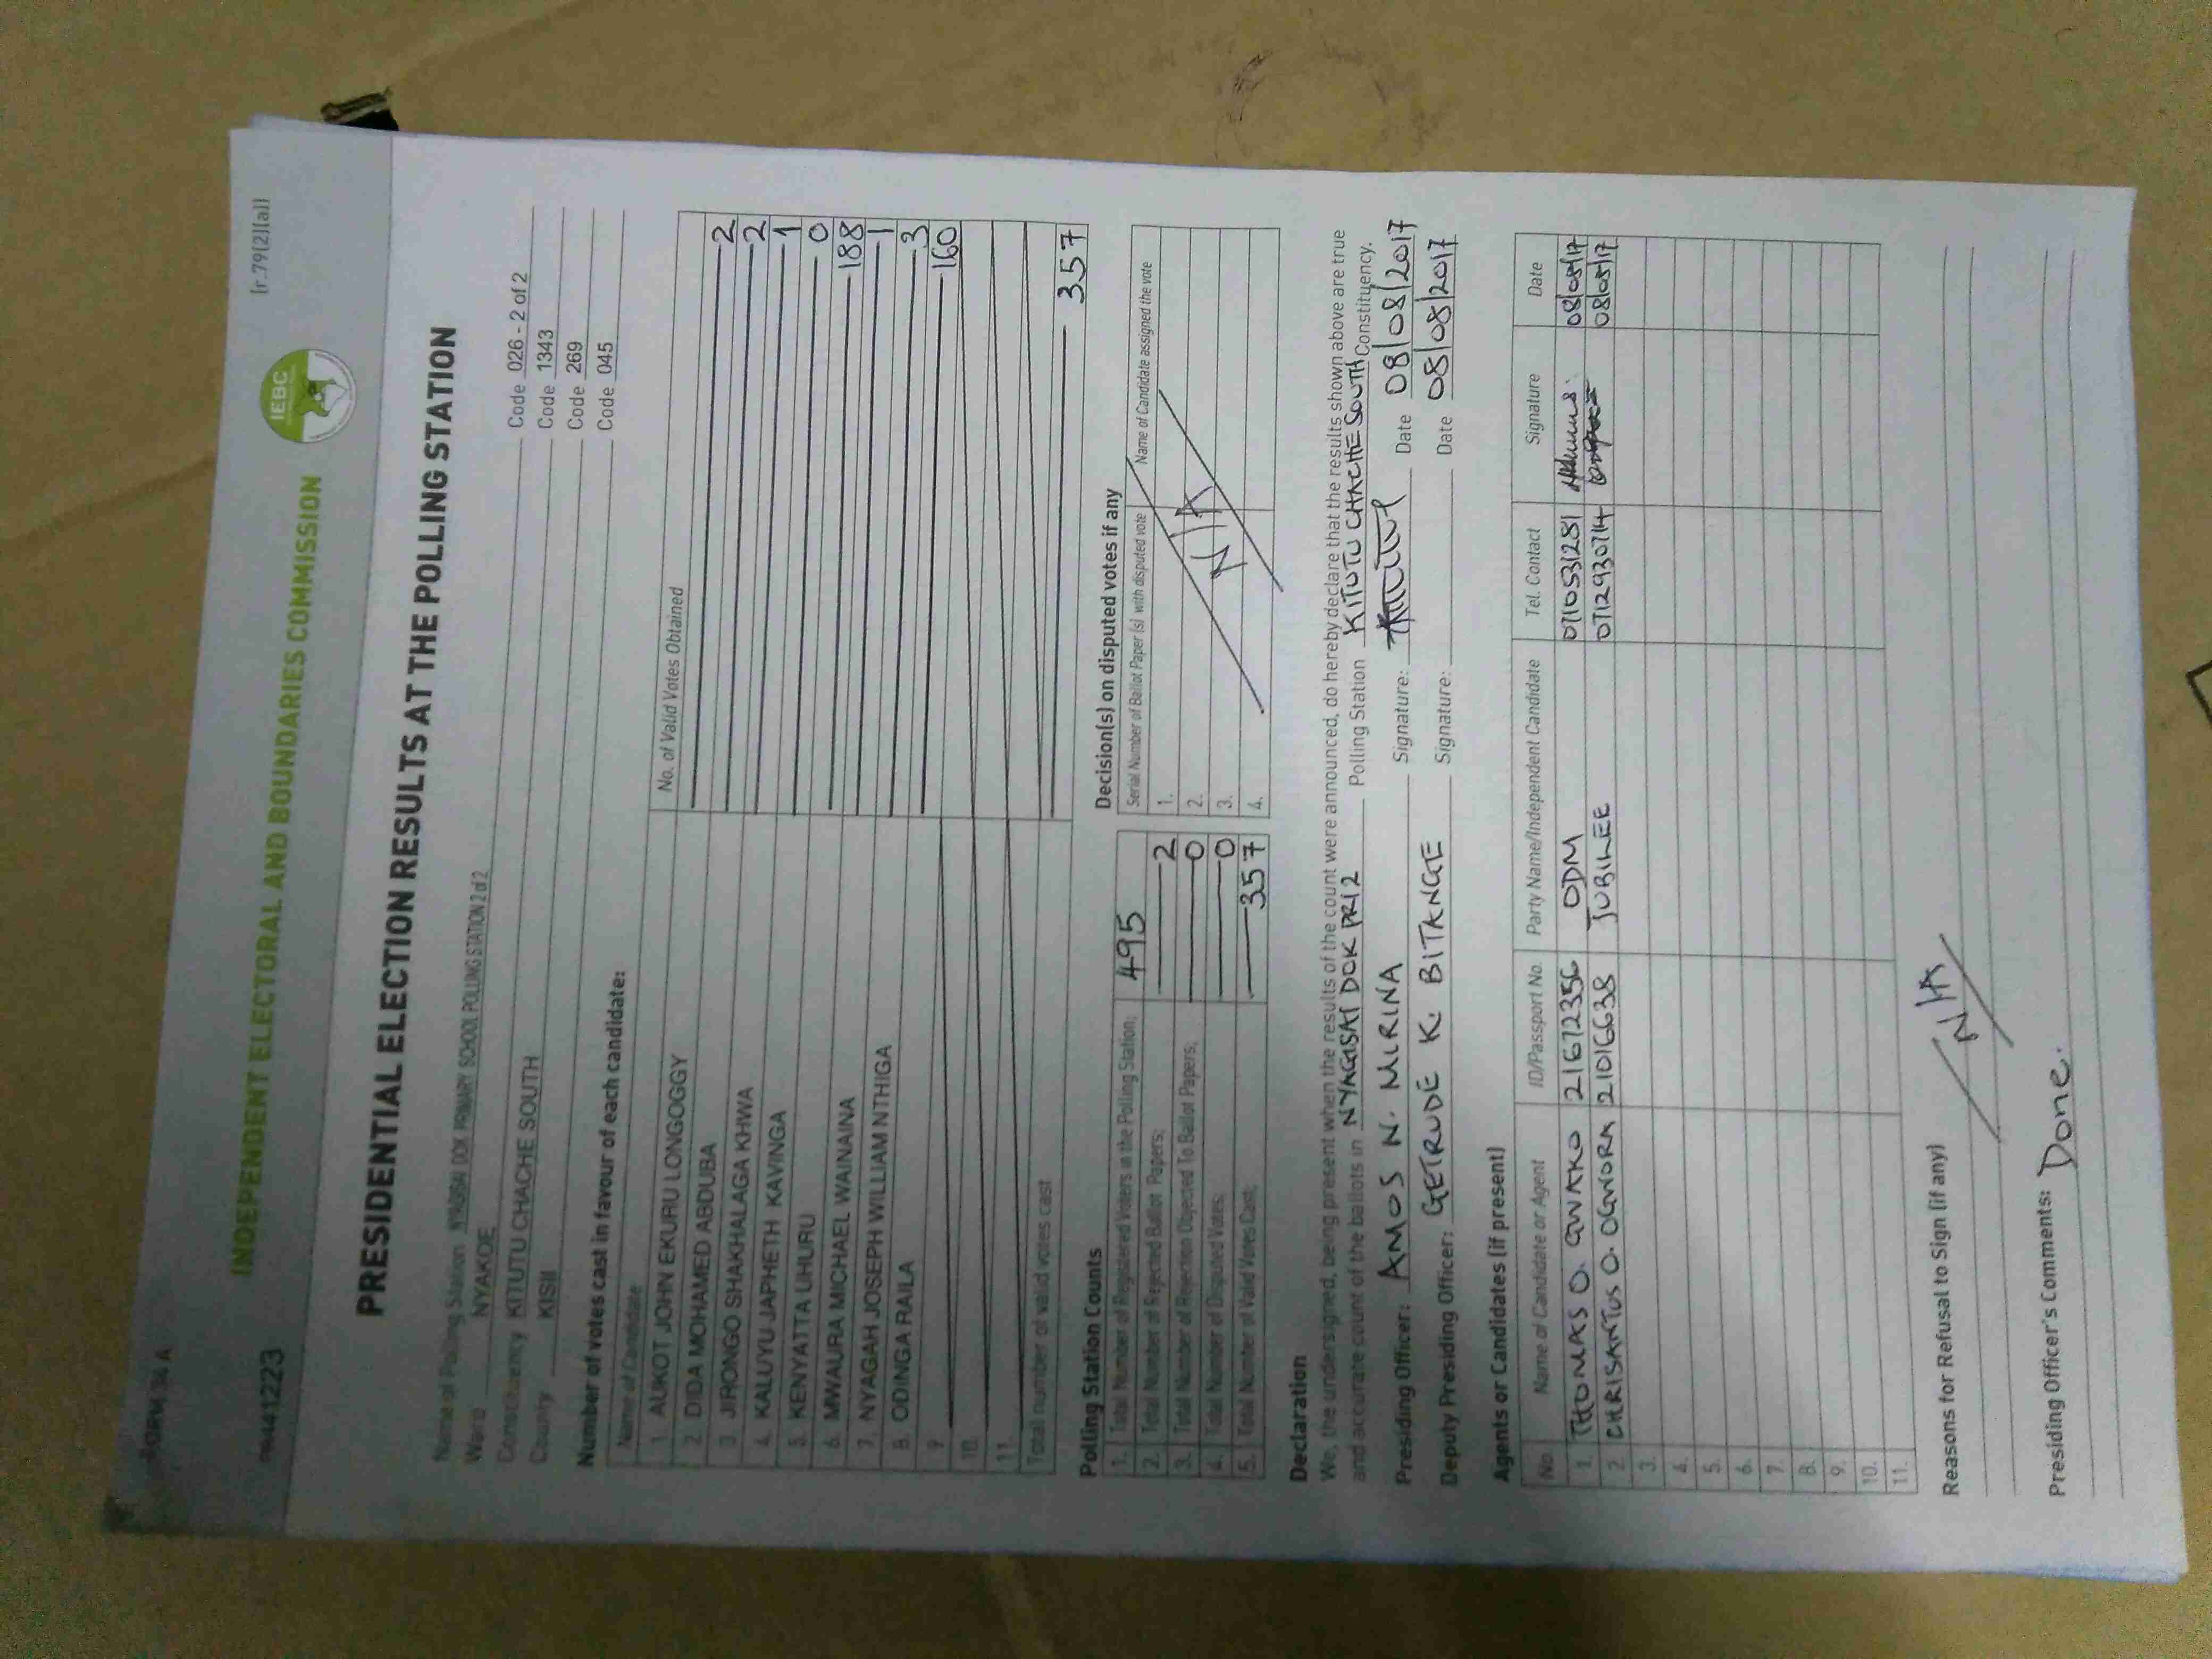 FORM 34 A
[r.79(2)(a)]
INDEPENDENT ELECTORAL AND BOUNDARIES COMMISSION
IEBC
PRESIDENTIAL ELECTION RESULTS AT THE POLLING STATION
Name of Polling Station NYAGISAI DOK PRIMARY SCHOOL POLLING STATION 2 of 2 Code 026 - 2 of 2
Ward NYAKOE Code 1343
Constituency KITUTU CHACHE SOUTH Code 269
County KISII Code 045
Number of votes cast in favour of each candidate:
Name of Candidate No. of Valid Votes Obtained
1. AUKOT JOHN EKURU LONGOGGY 2
2. DIDA MOHAMED ABDUBA 2
3. JIRONGO SHAKHALAGA KHWA 1
4. KALUYU JAPHETH KAVINGA 0
5. KENYATTA UHURU 188
6. MWAURA MICHAEL WAINAINA 1
7. NYAGAH JOSEPH WILLIAM NTHIGA 3
8. ODINGA RAILA 160
9.
10.
11.
Total number of valid votes cast 357
Polling Station Counts
1. Total Number of Registered Voters in the Polling Station; 495
2. Total Number of Rejected Ballot Papers; 2
3. Total Number of Rejection Objected To Ballot Papers; 0
4. Total Number of Disputed Votes; 0
5. Total Number of Valid Votes Cast; 357
Decision(s) on disputed votes if any
Serial Number of Ballot Paper (s) with disputed vote Name of Candidate assigned the vote
1.
2.
3.
4.
N/A
Declaration
We, the undersigned, being present when the results of the count were announced, do hereby declare that the results shown above are true
and accurate count of the ballots in NYAGISAI DOK PRI 2 Polling Station KITUTU CHACHE SOUTH Constituency.
Presiding Officer: AMOS N. MIRINA Signature: Date 08/08/2017
Deputy Presiding Officer: GETRUDE K. BITANGE Signature: Date 08/08/2017
Agents or Candidates (if present)
No. Name of Candidate or Agent ID/Passport No. Party Name/Independent Candidate Tel. Contact Signature Date
1. THOMAS O. GWAKO 21612356 ODM 0710531281 08/08/17
2. CHRISANTUS O. OGWORA 21016638 JUBILEE 0712930714 08/08/17
3.
4.
5.
6.
7.
8.
9.
10.
11.
Reasons for Refusal to Sign (if any)
N/A
Presiding Officer's Comments: Done.